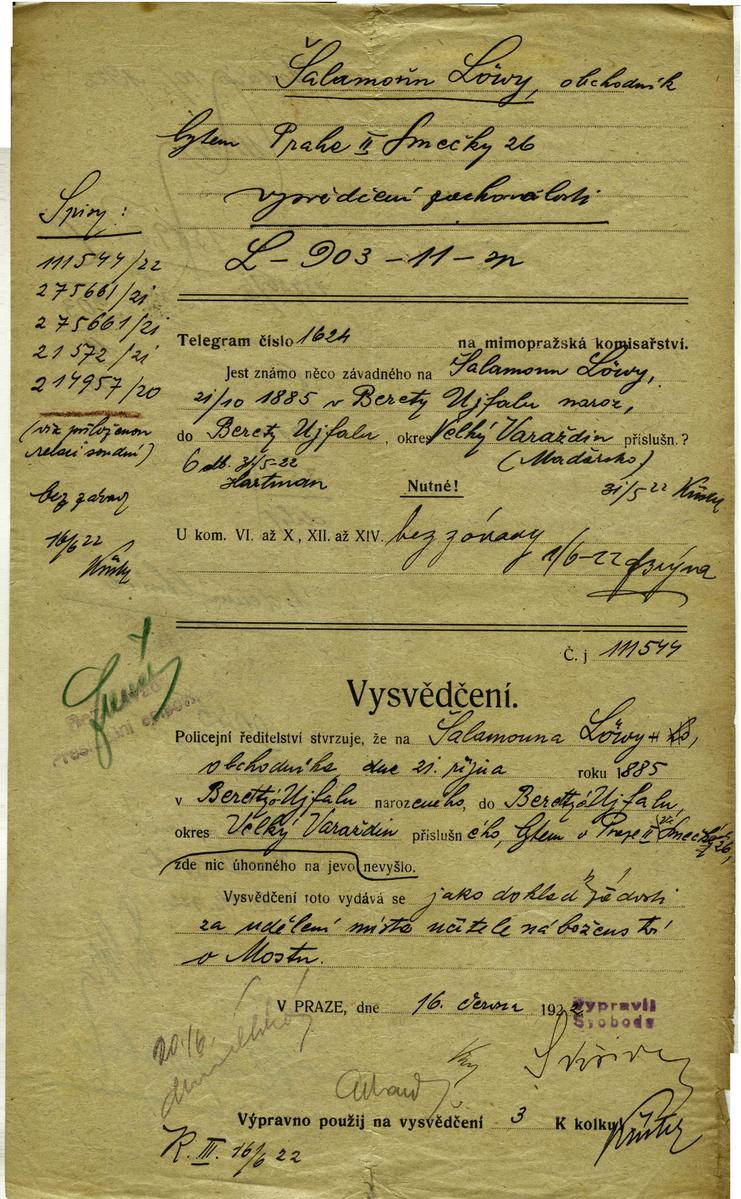 Šalamoun Löwy, obchodník
bytem Praha II Smečky 26
vysvědčení zachovalosti
L – 903 – 11 –
Spisy:
111544/22
275661/21
275661/21
21572/21
214957/20
(viz přiloženou
relaci soudní)
bez závad
16/6 22
Telegram číslo 1624 na mimopražská komisařství.
Jest známo něco závadného na Šalamoun Löwy,
21/10 1885 v Berety Ujfalu naroz,
do Berety Ujfalu, okres Velký Varaždin příslušn.?
6 31/5-22 (Maďarsko)
Hartman Nutné! 31/5 22
U kom. VI. až X, XII. až XIV. bez závady
1/6-22
Č. j 111544
Vysvědčení.
Policejní ředitelství stvrzuje, že na Šalamouna Löwy
obchodníka, dne 21. října roku 1885
v Berettjó Ujfalu narozeného, do Berettjó Ujfalu,
okres Velký Varaždin příslušného, bytem v Praze II Smečky 26,
zde nic úhonného na jevo nevyšlo.
Vysvědčení toto vydává se jako doklad žádosti
za udělení místa učitele náboženství
v Mostu.
V PRAZE, dne 16. června 1922
Vypravil
Svoboda
20/6.
Výpravno použij na vysvědčení 3 K kolku
K. III. 16/6 22